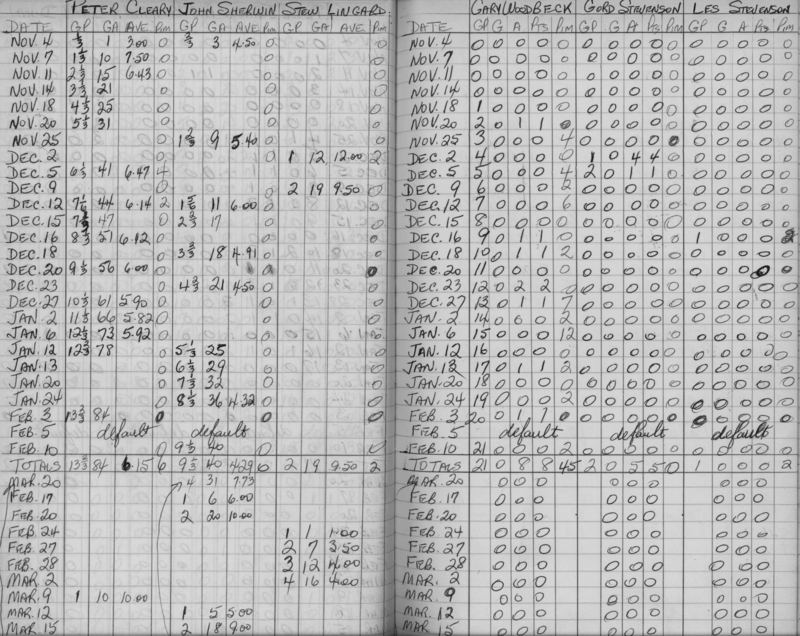 PETER CLEARY JOHN SHERWIN STEW LINGARD
DATE GP GA AVE Pim GP GA AVE Pim GP GA AVE Pim
NOV. 4 ⅓ 1 3.00 0 ⅔ 3 4.50 0 0
NOV. 7 1⅓ 10 7.50 0 0 0
NOV. 11 2⅓ 15 6.43 0 0 0
NOV. 14 3⅓ 21 0 0 0
NOV. 18 4⅓ 25 0 0 0
NOV. 20 5⅓ 31 0 0 0
NOV. 25 0 1⅔ 9 5.40 0 0
DEC. 2 0 0 1 12 12.00 2
DEC. 5 6⅓ 41 6.47 4 0 0
DEC. 9 0 0 2 19 9.50 0
DEC. 12 44 6.14 2 11 6.00 0 0
DEC. 15 47 0 2⅔ 17 0 0
DEC. 16 8⅓ 51 6.12 0 0 0
DEC. 18 0 3⅔ 18 4.91 0 0
DEC. 20 9⅓ 56 6.00 0 0 0
DEC. 23 0 4⅔ 21 4.50 0 0
DEC. 27 10⅓ 61 5.90 0 0 0
JAN. 2 11⅓ 66 5.82 0 0 0
JAN. 6 12⅓ 73 5.92 0 0 0
JAN. 12 12⅔ 78 0 5⅓ 25 0 0
JAN. 13 0 6⅓ 29 0 0
JAN. 20 0 7⅓ 32 0 0
JAN. 24 0 8⅓ 36 4.32 0 0
FEB. 3 13⅔ 84 0 0 0
FEB. 5 default default
FEB. 10 0 9⅓ 40 0 0
TOTALS 13⅔ 84 6.15 6 9⅓ 40 4.29 0 2 19 9.50 2
MAR. 20 4 31 7.75
FEB. 17 1 6 6.00
FEB. 20 2 20 10.00
FEB. 24 1 1 1.00
FEB. 27 2 7 3.50
FEB. 28 3 12 4.00
MAR. 2 4 16 4.00
MAR. 9 1 10 10.00
MAR. 12 1 5 5.00
MAR. 15 2 18 9.00
GARY WOODBECK GORD STEVENSON LES STEVENSON
DATE GP G A Pts Pim GP G A Pts Pim GP G A Pts Pim
NOV. 4 0 0 0 0 0 0 0 0 0 0 0 0 0 0 0
NOV. 7 0 0 0 0 0 0 0 0 0 0 0 0 0 0 0
NOV. 11 0 0 0 0 0 0 0 0 0 0 0 0 0 0 0
NOV. 14 0 0 0 0 0 0 0 0 0 0 0 0 0 0 0
NOV. 18 1 0 0 0 0 0 0 0 0 0 0 0 0 0 0
NOV. 20 2 0 1 1 0 0 0 0 0 0 0 0 0 0 0
NOV. 25 3 0 0 0 4 0 0 0 0 0 0 0 0 0 0
DEC. 2 4 0 0 0 0 1 0 4 4 0 0 0 0 0 0
DEC. 5 5 0 0 0 4 2 0 1 1 0 0 0 0 0 0
DEC. 9 6 0 0 0 2 0 0 0 0 0 0 0 0 0 0
DEC. 12 7 0 0 0 6 0 0 0 0 0 0 0 0 0 0
DEC. 15 8 0 0 0 0 0 0 0 0 0 0 0 0 0 0
DEC. 16 9 0 1 1 0 0 0 0 0 0 1 0 0 0 2
DEC. 18 10 0 1 1 2 0 0 0 0 0 0 0 0 0 0
DEC. 20 11 0 0 0 0 0 0 0 0 0 0 0 0 0 0
DEC. 23 12 0 2 2 0 0 0 0 0 0 0 0 0 0 0
DEC. 27 13 0 1 1 7 0 0 0 0 0 0 0 0 0 0
JAN. 2 14 0 0 0 2 0 0 0 0 0 0 0 0 0 0
JAN. 6 15 0 0 0 12 0 0 0 0 0 0 0 0 0 0
JAN. 12 16 0 0 0 0 0 0 0 0 0 0 0 0 0 0
JAN. 13 17 0 1 1 2 0 0 0 0 0 0 0 0 0 0
JAN. 20 18 0 0 0 0 0 0 0 0 0 0 0 0 0 0
JAN. 24 19 0 0 0 2 0 0 0 0 0 0 0 0 0 0
FEB. 3 20 0 1 1 0 0 0 0 0 0 0 0 0 0 0
FEB. 5 default default default
FEB. 10 21 0 0 0 2 0 0 0 0 0 0 0 0 0 0
TOTALS 21 0 8 8 45 2 0 5 5 0 1 0 0 0 2
MAR. 20 0 0 0 0 0 0 0 0 0
FEB. 17 0 0 0 0 0 0 0 0 0
FEB. 20 0 0 0 0 0 0 0 0 0
FEB. 24 0 0 0 0 0 0 0 0 0
FEB. 27 0 0 0 0 0 0 0 0 0
FEB. 28 0 0 0 0 0 0 0 0 0
MAR. 2 0 0 0 0 0 0 0 0 0
MAR. 9 0 0 0 0 0 0 0 0 0
MAR. 12 0 0 0 0 0 0 0 0 0
MAR. 15 0 0 0 0 0 0 0 0 0